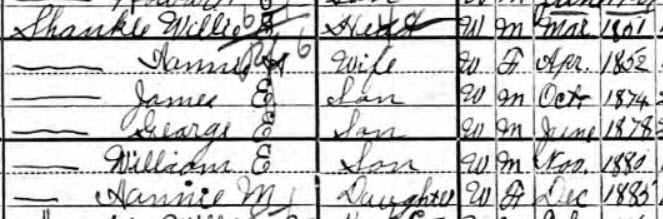 Shankle Willie E Head W M Mar 1851
— Nannie Wife W F Apr. 1852
— James E Son W M Oct 1874
— George E Son W M June 1878
— William E Son W M Nov. 1880
— Nannie M Daughter W F Dec 1885